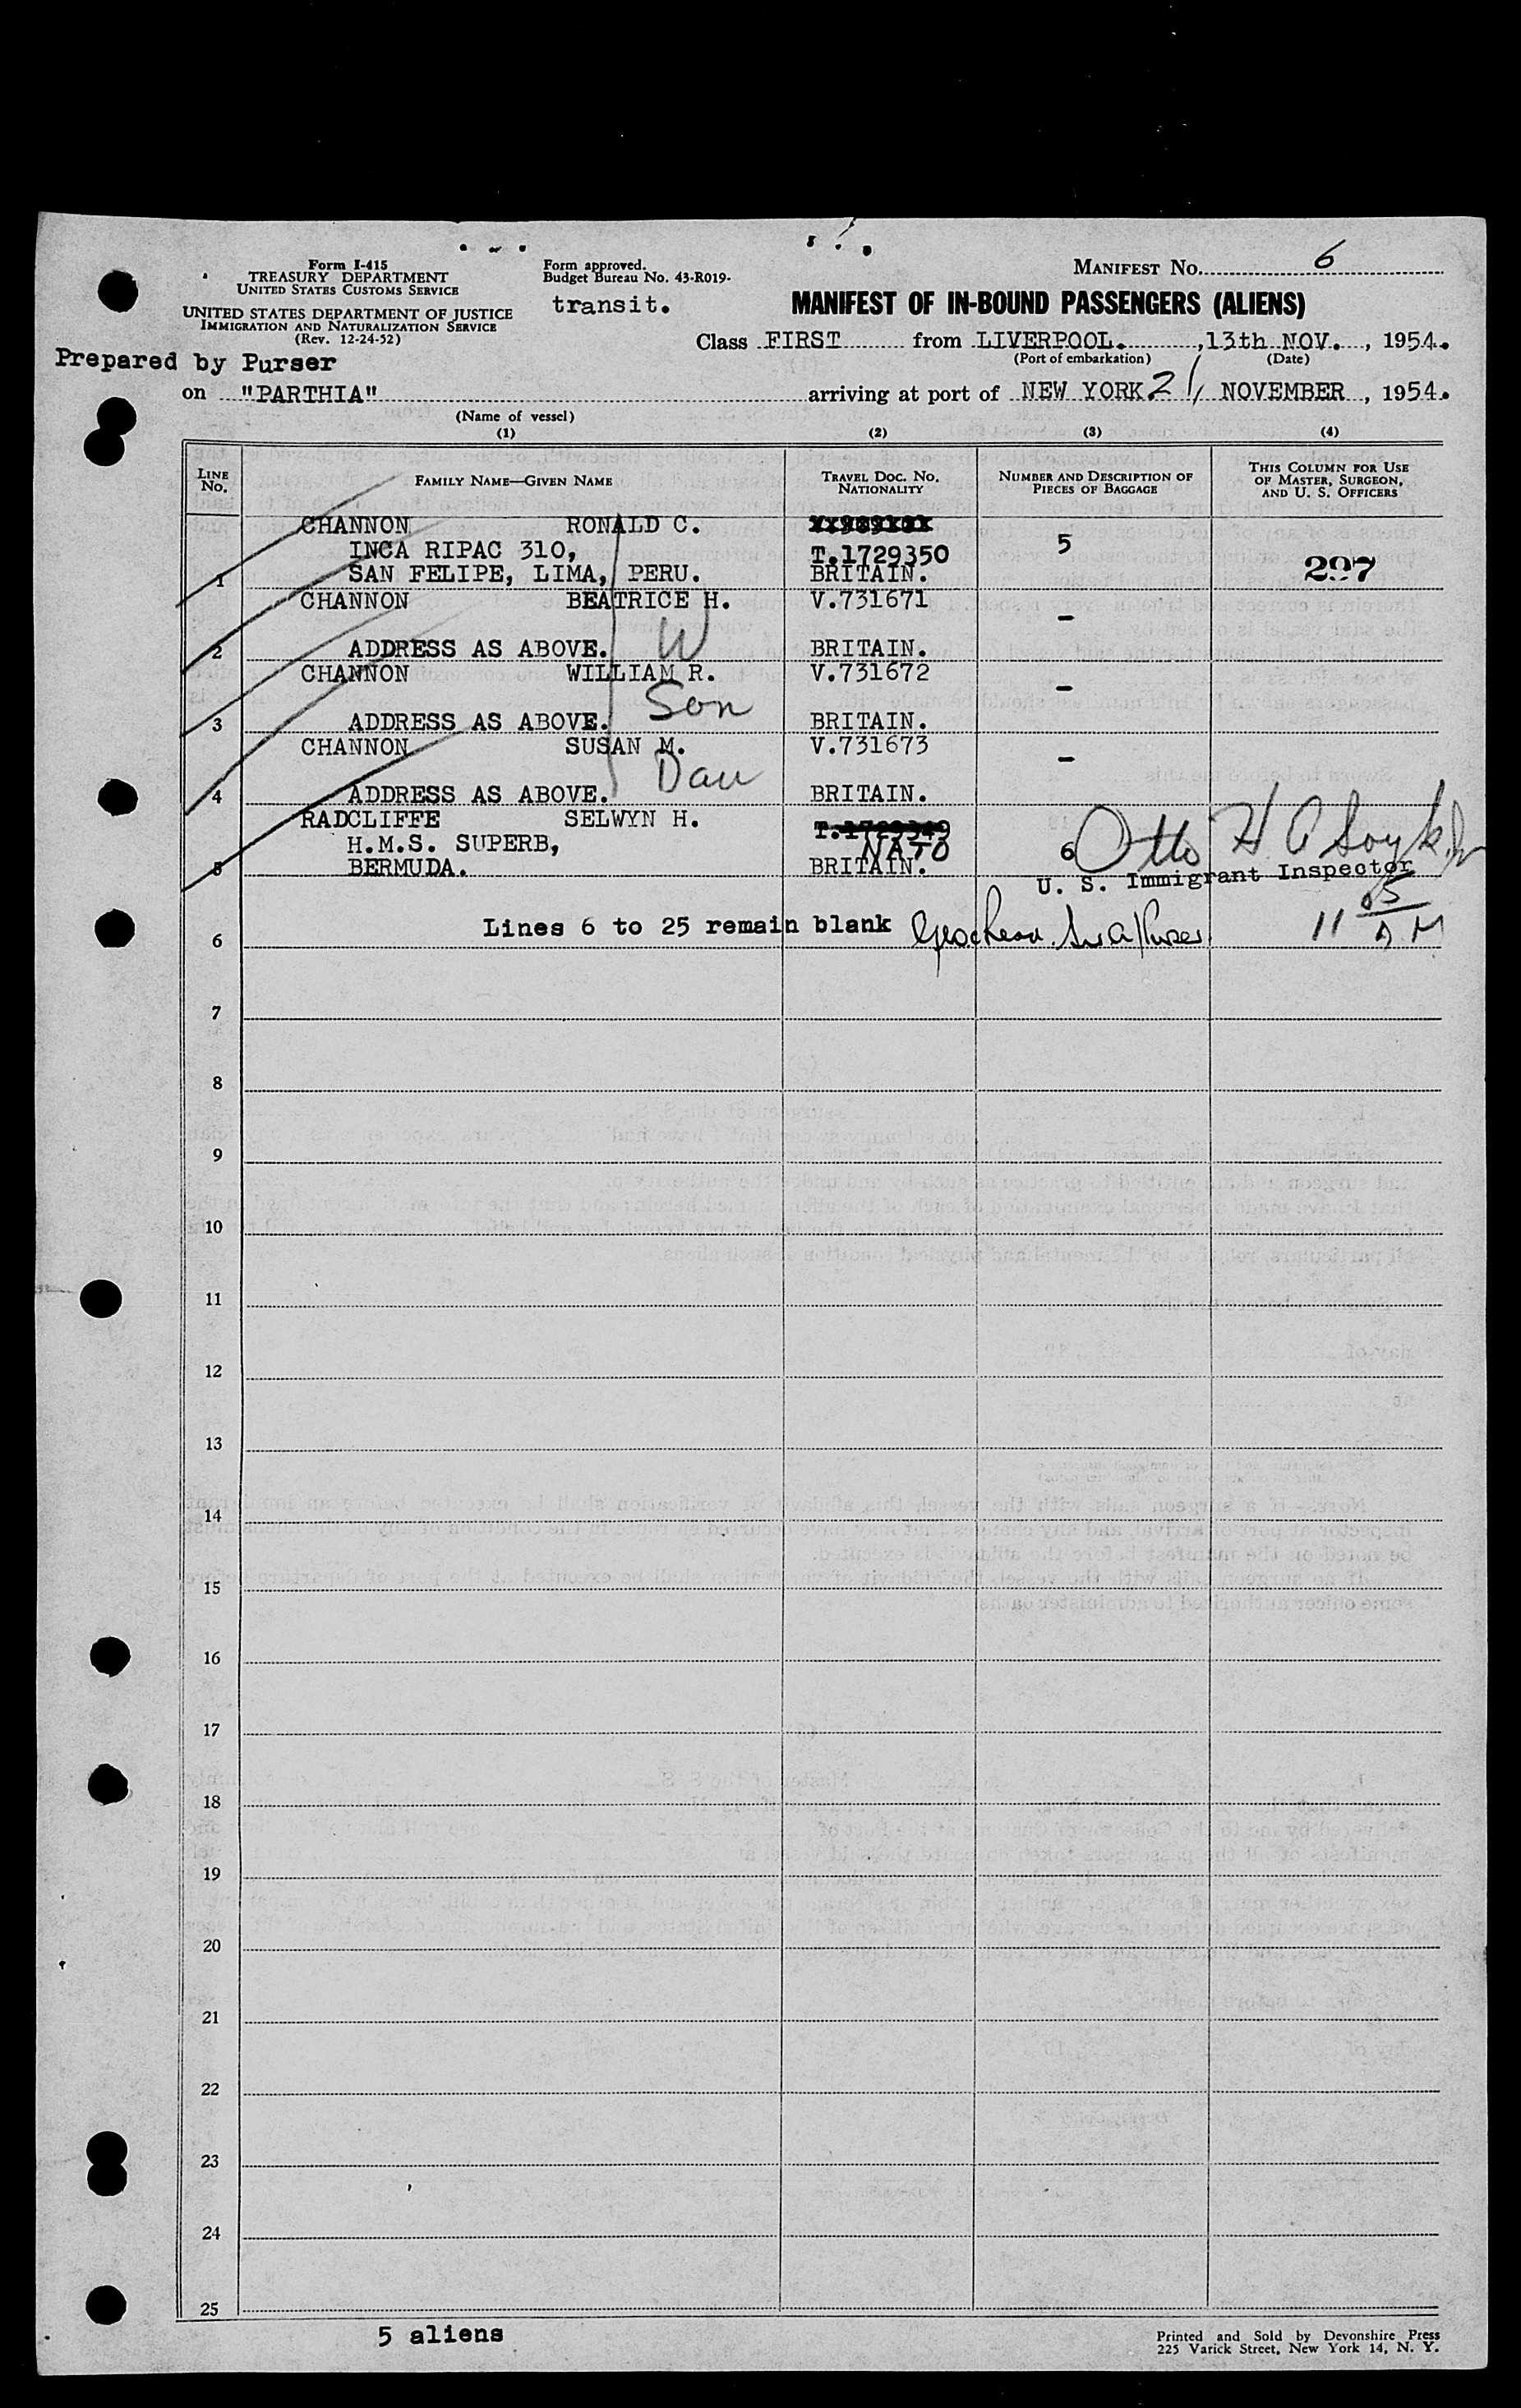 Form I-415
TREASURY DEPARTMENT
UNITED STATES CUSTOMS SERVICE
UNITED STATES DEPARTMENT OF JUSTICE
IMMIGRATION AND NATURALIZATION SERVICE
(Rev. 12-24-52)
Form approved.
Budget Bureau No. 43-R019-
transit.
MANIFEST NO. 6
MANIFEST OF IN-BOUND PASSENGERS (ALIENS)
Class FIRST from LIVERPOOL. , 13th NOV. , 1954.
(Port of embarkation) (Date)
Prepared by Purser
on "PARTHIA" arriving at port of NEW YORK 21, NOVEMBER , 1954.
(Name of vessel)
(1) (2) (3) (4)
LINE NO. FAMILY NAME—GIVEN NAME TRAVEL DOC. NO. NATIONALITY NUMBER AND DESCRIPTION OF PIECES OF BAGGAGE THIS COLUMN FOR USE OF MASTER, SURGEON, AND U. S. OFFICERS
CHANNON RONALD C.
INCA RIPAC 310, T.1729350 5
1 SAN FELIPE, LIMA, PERU. BRITAIN. 297
CHANNON BEATRICE H. V.731671 -
W
2 ADDRESS AS ABOVE. BRITAIN.
CHANNON WILLIAM R. V.731672 -
Son
3 ADDRESS AS ABOVE. BRITAIN.
CHANNON SUSAN M. V.731673 -
Dau
4 ADDRESS AS ABOVE. BRITAIN.
RADCLIFFE SELWYN H. T.1729349
H.M.S. SUPERB, NATO 6 Otto H
5 BERMUDA. BRITAIN.
U. S. Immigrant Inspector
Lines 6 to 25 remain blank 11 05 AM
6
7
8
9
10
11
12
13
14
15
16
17
18
19
20
21
22
23
24
25
5 aliens
Printed and Sold by Devonshire Press
225 Varick Street, New York 14, N. Y.